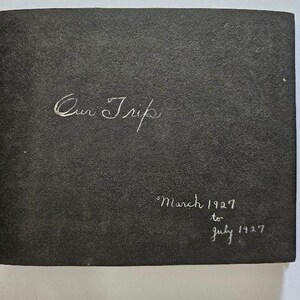 Our Trip
March 1927
to
July 1927